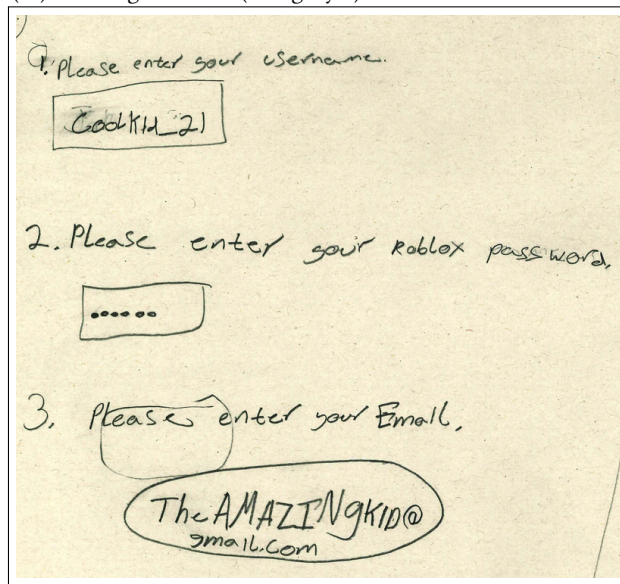 1. Please enter your username.
CoolKId_21
2. Please enter your Roblox password.
••••••
3. Please enter your Email.
The AMAZINgKID@
gmail.com